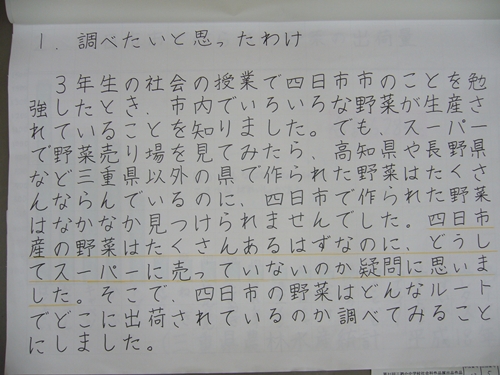 1．調べたいと思ったわけ
3年生の社会の授業で四日市市のことを勉
強したとき、市内でいろいろな野菜が生産さ
れていることを知りました。でも、スーパー
で野菜売り場を見てみたら、高知県や長野県
など三重県以外の県で作られた野菜はたくさ
んならんでいるのに、四日市で作られた野菜
はなかなか見つけられませんでした。四日市
産の野菜はたくさんあるはずなのに、どうし
てスーパーに売っていないのか疑問に思いま
した。そこで、四日市の野菜はどんなルート
でどこに出荷されているのか調べてみること
にしました。